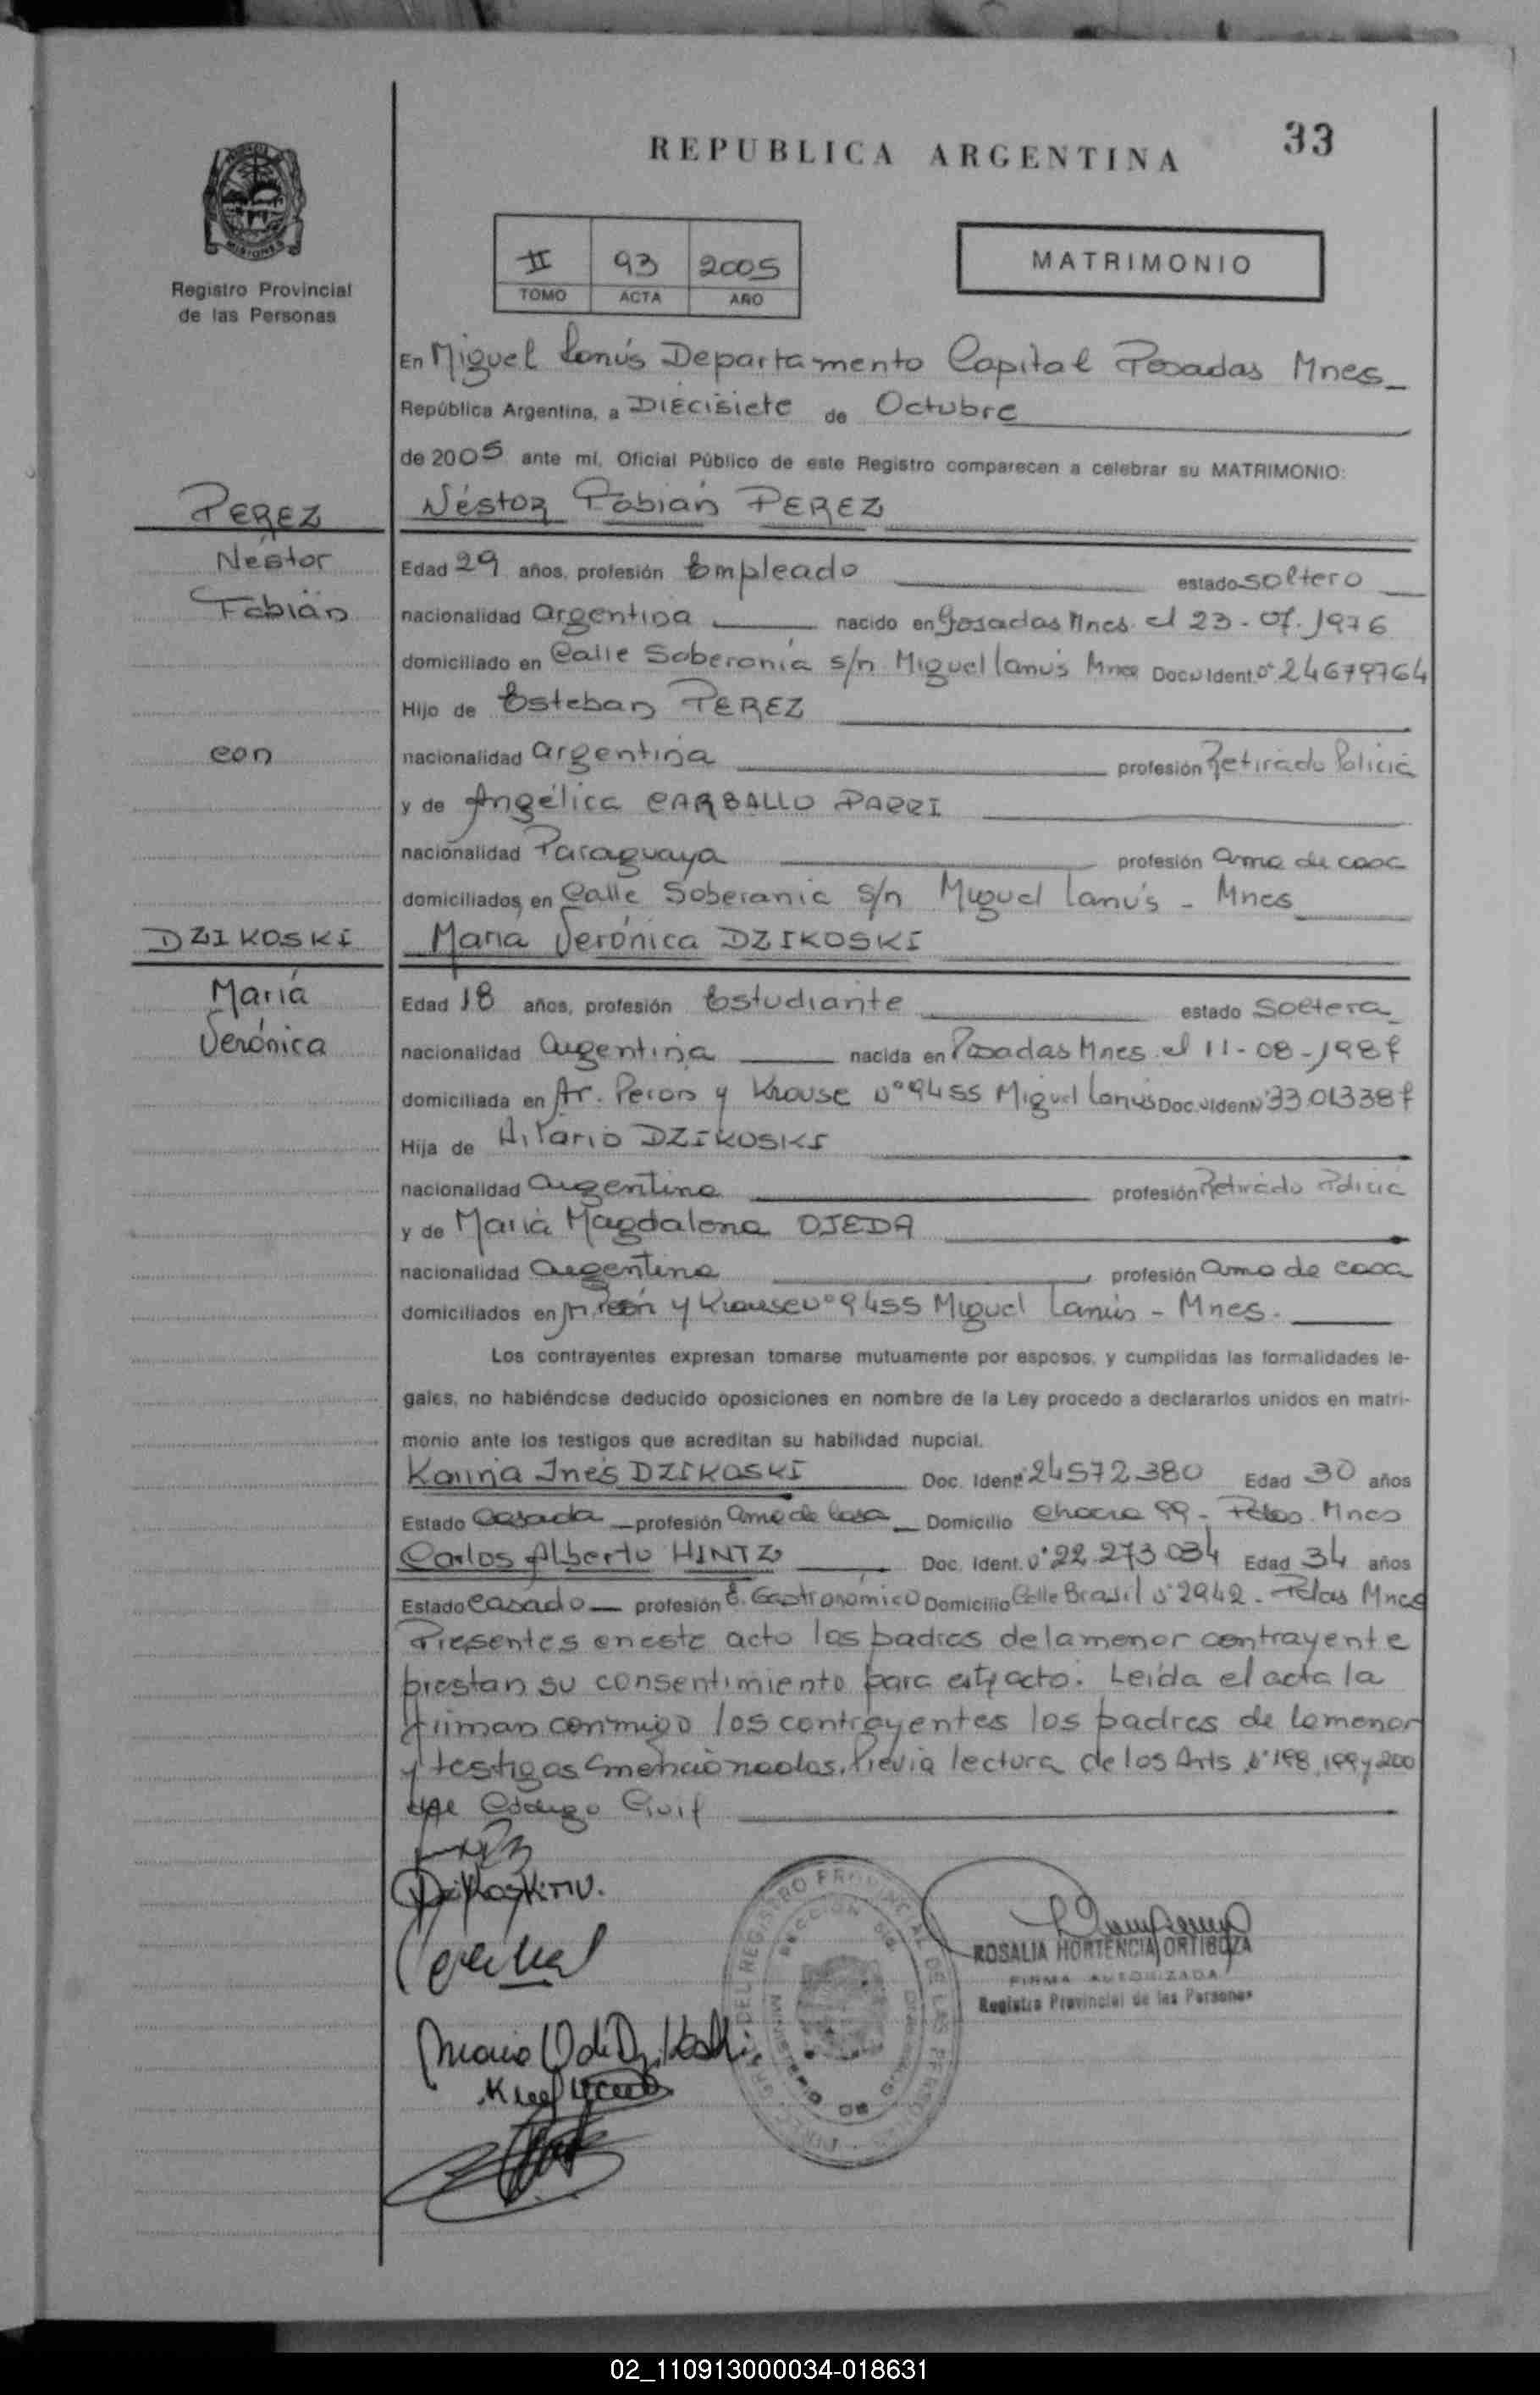 33
REPUBLICA ARGENTINA
MISIONES
Registro Provincial
de las Personas
II 93 2005
TOMO ACTA AÑO
MATRIMONIO
En Miguel Lanús Departamento Capital Posadas Mnes
República Argentina, a Diecisiete de Octubre
de 2005 ante mí, Oficial Público de este Registro comparecen a celebrar su MATRIMONIO:
PEREZ
Néstor Fabián PEREZ
Néstor
Edad 29 años, profesión Empleado estado soltero
Fabián
nacionalidad argentina nacido en Posadas Mnes el 23-07-1976
domiciliado en Calle Soberanía s/n Miguel Lanús Mnes Doc. Ident. Nº 24679764
Hijo de Esteban PEREZ
con
nacionalidad argentina profesión Retirado Policia
y de Angélica CARBALLO PARRI
nacionalidad Paraguaya profesión ama de casa
domiciliados en Calle Soberania s/n Miguel Lanús - Mnes
DZIKOSKI
María Verónica DZIKOSKI
María
Edad 18 años, profesión Estudiante estado Soltera
Verónica
nacionalidad Argentina nacida en Posadas Mnes el 11-08-1987
domiciliada en Av. Peron y Krause Nº 9455 Miguel Lanús Doc. Ident Nº 33.013387
Hija de Hilario DZIKOSKI
nacionalidad Argentina profesión Retirado Policia
y de María Magdalena OJEDA
nacionalidad Argentina profesión ama de casa
domiciliados en Av. Perón y Krause Nº 9455 Miguel Lanús - Mnes.
Los contrayentes expresan tomarse mutuamente por esposos, y cumplidas las formalidades le-
gales, no habiéndose deducido oposiciones en nombre de la Ley procedo a declararlos unidos en matri-
monio ante los testigos que acreditan su habilidad nupcial.
Karina Inés DZIKOSKI Doc. Ident. 24572380 Edad 30 años
Estado Casada profesión ama de Casa Domicilio Chacra 99 - Pdas. Mnes
Carlos Alberto HINTZ Doc. Ident. Nº 22.273.034 Edad 34 años
Estado Casado profesión E. Gastronómico Domicilio Calle Brasil Nº 2942 - Pdas Mnes
Presentes en este acto los padres de la menor contrayente
prestan su consentimiento para este acto. Leída el acta la
firman conmigo los contrayentes los padres de la menor
y testigos mencionados. Previa lectura de los Arts Nº 198, 199 y 200
del Código Civil
Dzikoski M.V.
ROSALIA HORTENCIA ORTIGOZA
FIRMA AUTORIZADA
Registro Provincial de las Personas
02_110913000034-018631